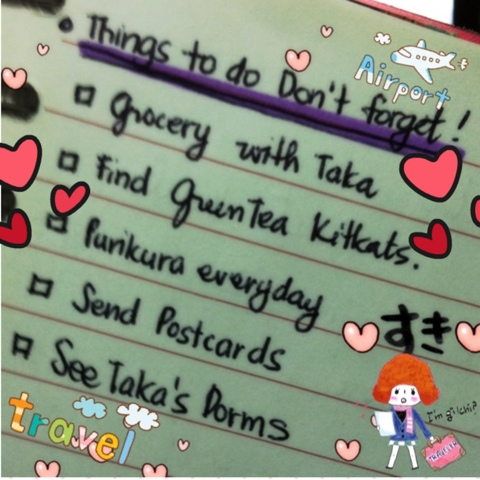 Things to do Don't forget!
Airport
Grocery with Taka
Find GreenTea Kitkats.
Purikura everyday
Send Postcards
すき
See Taka's Dorms
travel